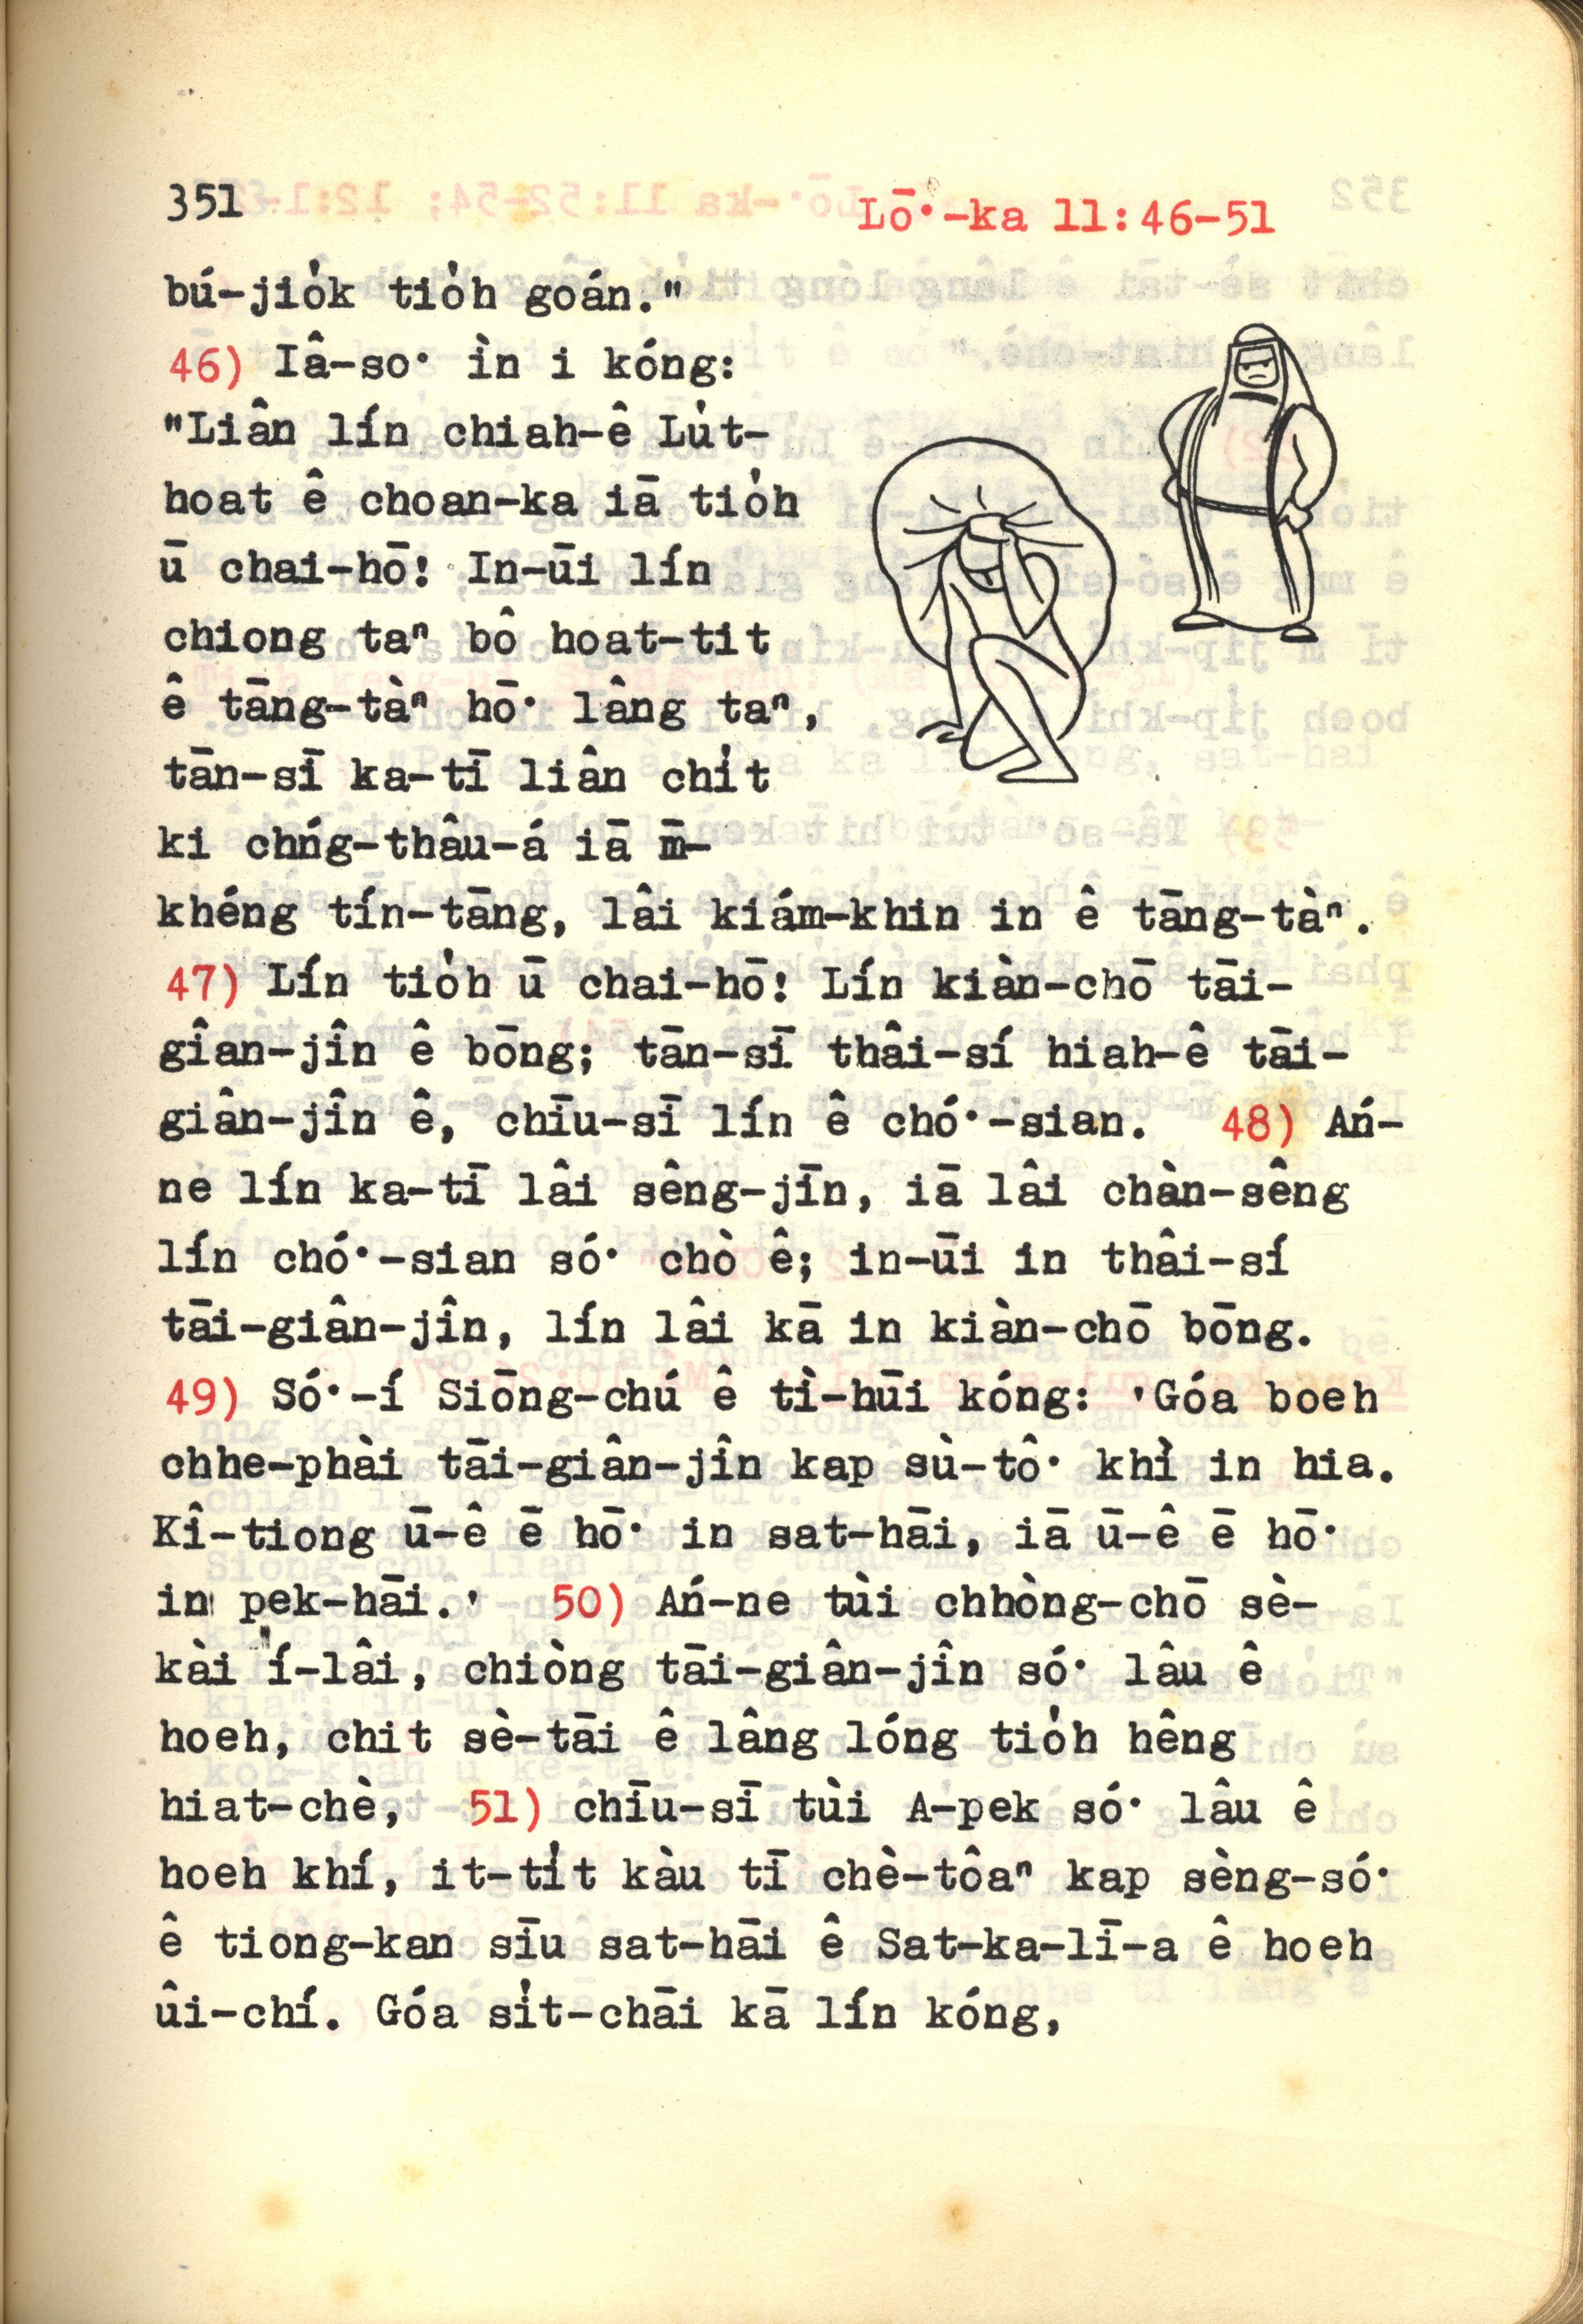 351
Lō͘-ka 11:46-51
bú-jio̍k tio̍h goán."
46) Iâ-so͘ ìn i kóng:
"Liân lín chiah-ê Lu̍t-
hoat ê choan-ka iā tio̍h
ū chai-hō! In-ūi lín
chiong taⁿ bô hoat-tit
ê tāng-tàⁿ hō͘ lâng taⁿ,
tān-sī ka-tī liân chi̍t
ki chńg-thâu-á iā m̄-
khéng tín-tāng, lâi kiám-khin in ê tāng-tàⁿ.
47) Lín tio̍h ū chai-hō! Lín kiàn-chō tāi-
gîan-jîn ê bōng; tān-sī thâi-sí hiah-ê tāi-
giân-jîn ê, chīu-sī lín ê chó͘-sian. 48) Ań-
ne lín ka-tī lâi sêng-jīn, iā lâi chàn-sêng
lín chó͘-sian só͘ chò ê; in-ūi in thâi-sí
tāi-giân-jîn, lín lâi kā in kiàn-chō bōng.
49) Só͘-í Siōng-chú ê tì-hūi kóng: 'Góa boeh
chhe-phài tāi-giân-jîn kap sù-tô͘ khì in hia.
Kî-tiong ū-ê ē hō͘ in sat-hāi, iā ū-ê ē hō͘
in pek-hāi.' 50) Ań-ne tùi chhòng-chō sè-
kài í-lâi, chiòng tāi-giân-jîn só͘ lâu ê
hoeh, chit sè-tāi ê lâng lóng tio̍h hêng
hiat-chè, 51) chīu-sī tùi A-pek só͘ lâu ê
hoeh khí, it-ti̍t kàu tī chè-tôaⁿ kap sèng-só͘
ê tiong-kan sīu sat-hāi ê Sat-ka-lī-a ê hoeh
ûi-chí. Góa si̍t-chāi kā lín kóng,